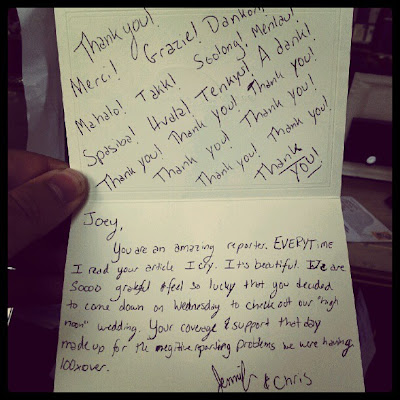 Thank you!
Grazie! Dankon!
Merci!
Mahalo! Takk! Soolong! Mentau!
Spasiba! Hvala! Tenkyu! A dank!
Thank you! Thank you! Thank you!
Thank you! Thank you!
Thank you! Thank you!
Thank
YOU!
Joey,
You are an amazing reporter. EVERYTIME
I read your article I cry. It's beautiful. We are
Soooo grateful & feel so lucky that you decided
to come down on Wednesday to check out our "high
noon" wedding. Your coverage & support that day
made up for the negitive reporting problems we were having
100x over.
Jennifer & Chris